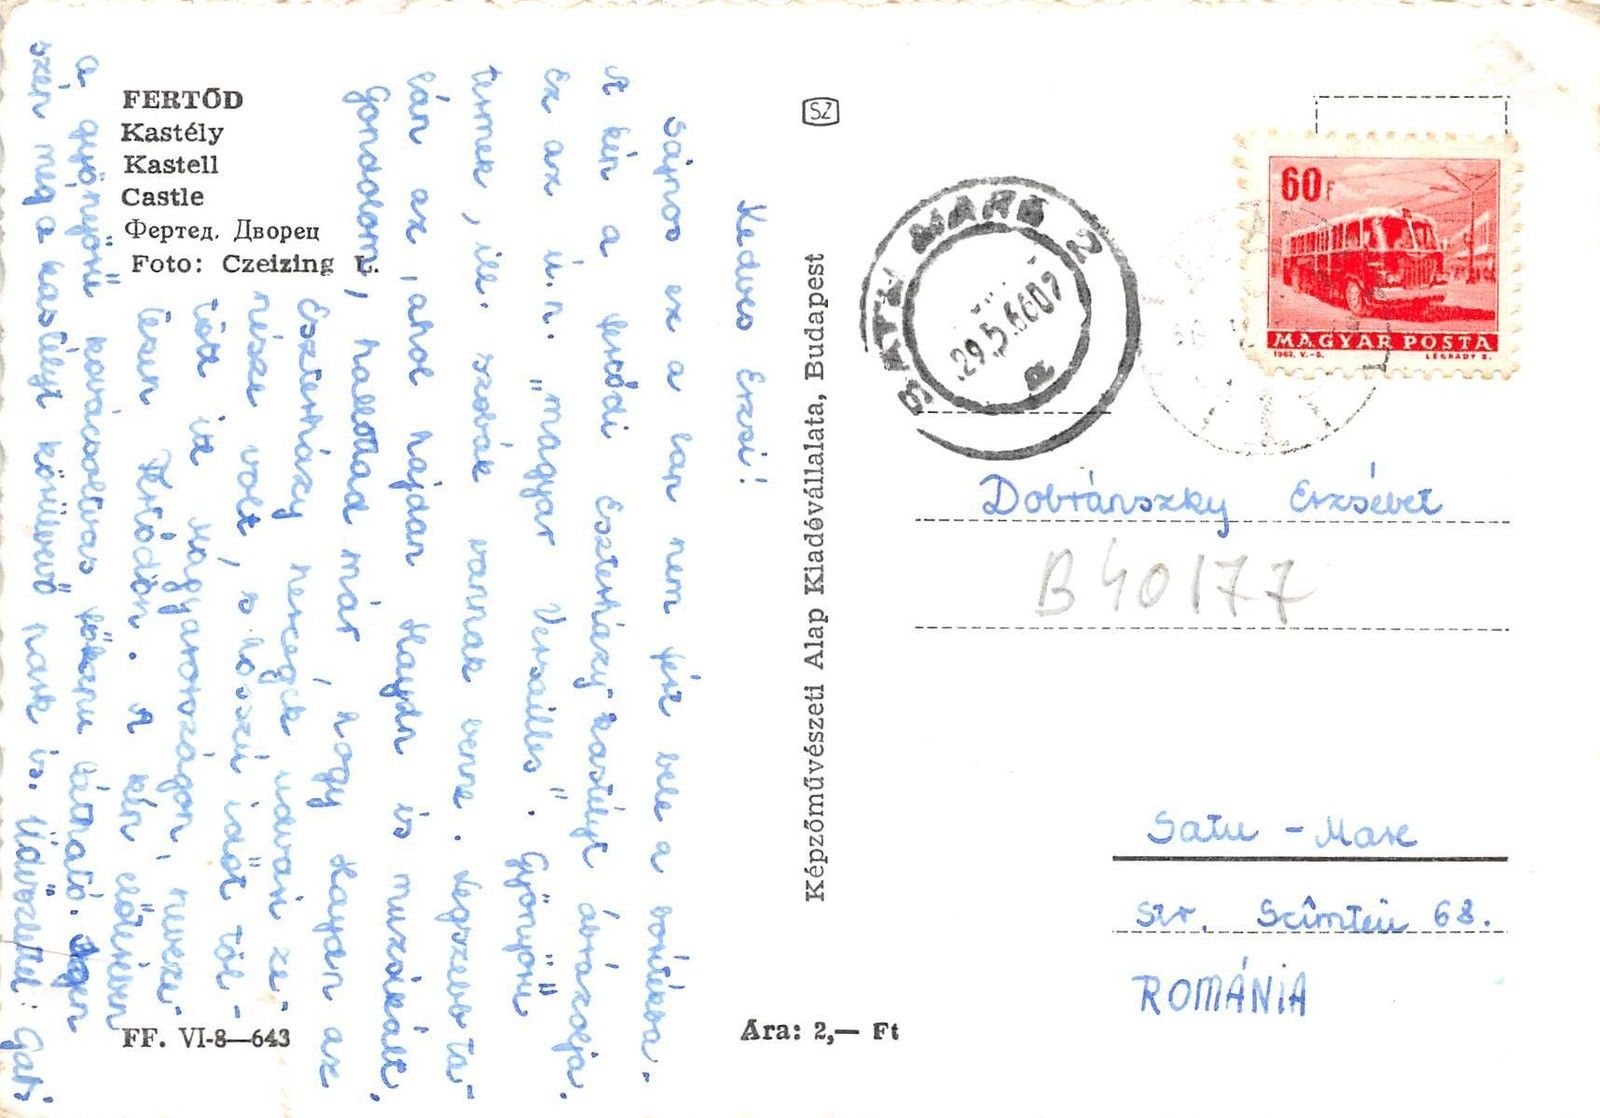 FERTŐD
Kastély
Kastell
Castle
Фертед. Дворец
Foto: Czeizing L.
Kedves Erzsi!
Sajnos ez a lap nem fért bele a borítékba.
A kép a fertődi Eszterházy kastélyt ábrázolja.
Ez az ú.n. „magyar Versailles". Gyönyörű
termek, ill. szobák vannak benne. Legszebb ta-
lán az, ahol hajdan Haydn is muzsikált.
Gondolom, hallottad már, hogy Haydn az
Eszterházy hercegek udvari ze-
nésze volt, s hosszú időt töl-
tött itt Magyarországon, neveze-
tesen Fertődön. A kép előterében
a gyönyörű kovácsoltvas kapu látható. Igen
szép még a kastélyt körülvevő park is. Üdvözlettel: Gabi
FF. VI-8—643
Ára: 2,— Ft
Képzőművészeti Alap Kiadóvállalata, Budapest
SZ
SATU MARE 2
29.5.66 07
60f
MAGYAR POSTA
1963. V.-S.
LÉGRÁDY S.
Dobránszky Erzsébet
B 40177
Satu-Mare
str. 68.
ROMÁNIA